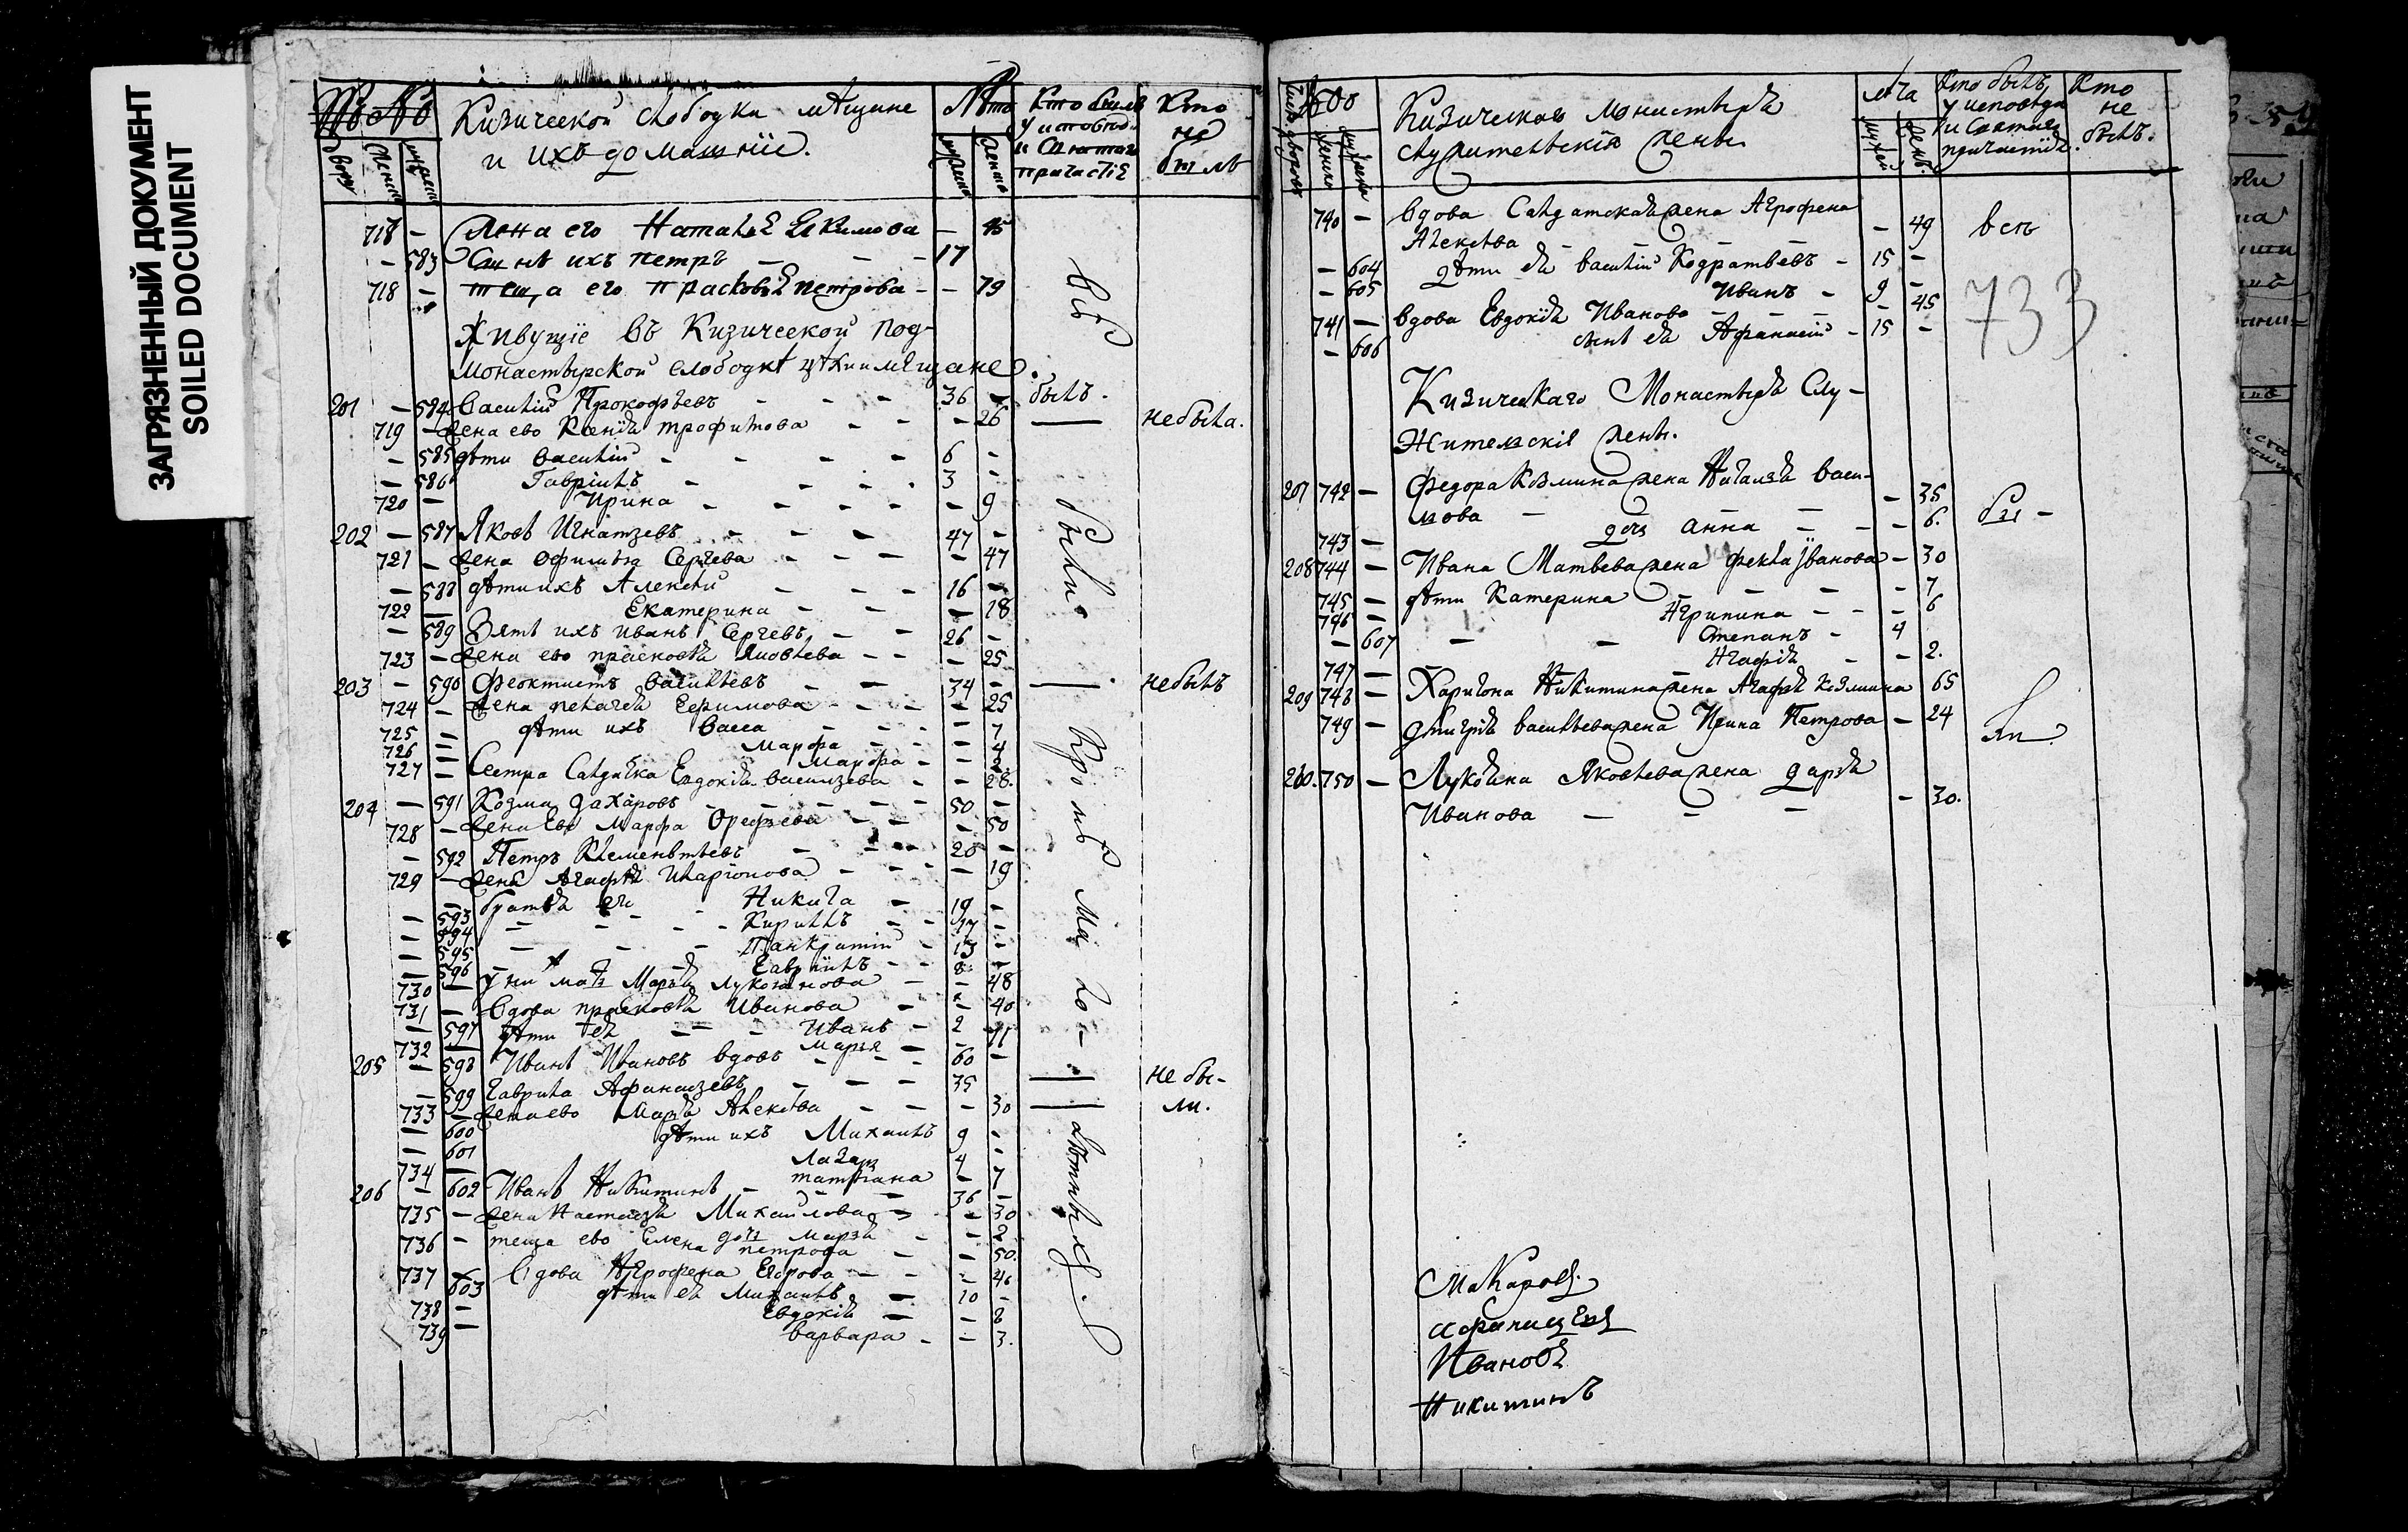 ЗАГРЯЗНЕННЫЙ ДОКУМЕНТ
SOILED DOCUMENT
Кизической слободки мѣщане
и ихъ домашнїе.
Кто былъ
у исповѣд.
и Святаго
причастїе
Кто
не
былъ
718 – Жена его Наталья Екимова – 45
– 583 Сынъ ихъ петръ – – – 17
718 – теща его прасковья петрова – – 79
всѣ
Живущїе въ Кизической под-
монастырской слободкѣ цѣхи и мѣщане.
201 – 584 Василій Прокофьевъ – – – 36 – былъ.
719 – жена ево Ксенїя трофимова – – – 26 — небыла.
– 585 дѣти Василій – – – – 6 –
– 586 Гаврїилъ – – – – 3 –
720 – Ирина – – – – – 9
202 – 587 Яковъ Игнатьевъ – – – 47 –
721 – жена Офимья Сергѣева – – – – 47
– 588 дѣти ихъ Алексѣй – – – 16 –
722 – Екатерина – – – 18
– 589 Зять ихъ иванъ Сергѣевъ – – 26 –
723 – жена ево прасковья Яковлева – – – 25
203 – 590 Феоктистъ Васильевъ – – 34 – — небылъ
724 – жена пелагея Ефимова – – – – 25
725 – дѣти ихъ Васса – – – – 7
726 – Марфа – – – 4
Марфа – – 2
727 – Сестра Салдатка Евдокїя васильева – – 28.
204 – 591 Козма Захаровъ – – – – – 50 –
728 – жена Ево Марфа Орефьева – – – 50
– 592 Петръ Клементьевъ – – – 20 –
729 – жена Агафья Иларїонова – – – – 19
– 593 братья его – Никита – 19 –
– 594 – – – – Кириллъ – – 17 –
– 595 – – – Панкратїй – 13 –
– 596 – – – Гаврїилъ – – 8 –
730 – у ни мать Марья Лукоянова – – 48
731 – вдова прасковья Иванова – – 40
– 597 дѣти ея – – Иванъ – 2 –
732 – Марья – – 11
205 – 598 Иванъ Ивановъ вдовъ – – – 60 –
– 599 Гаврила Афанасьевъ – – – 35 — не бы-
733 – жена ево Марья Алексѣева – – – – 30 — ли.
– 600 дѣти ихъ Михаилъ 9 –
– 601 Лазарь 4 –
734 – татьяна – 7
206 – 602 Иванъ Никитинъ – – – 36 –
735 – жена Настасья Михайлова – – 30
дочь Марья – – 2
736 – теща ево Елена петрова – – 50.
737 – вдова Агрофена Егорова – – – 46
– 603 дѣти ея Михаилъ – 10 –
738 – Евдокїя – – 8
739 – варвара – – 3.
были
Кромѣ
Мало-
лѣтныхъ.
Кизическаго монистыря
служительскїя жены
лѣта
Кто былъ
у исповѣди
и Святаго
причастїя.
Кто
не
былъ.
740 – вдова Салдатская жена Агрофена
Алексѣева – – – – 49 всѣ
– 604 дѣти ея василій Кодратьевъ – 15 –
– 605 Иванъ – 9 –
741 – вдова Евдокїя Иванова – – – – 45
– 606 сынъ ея Афанасїй – 15 –
733
Кизическаго Монастыря Слу-
жительскїя жены.
207 742 – Федора Козмина жена Наталья Васи-
льева – – 35
743 – дочь Анна – – – 6. бы-
208 744 – Ивана Матвѣева жена фекла Іванова – 30
745 – дѣти Катерина – – – – 7
746 – Агрипина – – – 6
– 607 – – Степанъ – 4
747 – Агафїя – – 2.
209 748 – Харитона Никитина жена Агафья Козмина 65
749 – Дмитрїя васильева жена Ирина Петрова – 24 ли.
210. 750 – Лукояна Яковлева жена дарья
Иванова – – – – 30.
Макаровъ.
Афанасьевъ
Ивановъ
Никитинъ